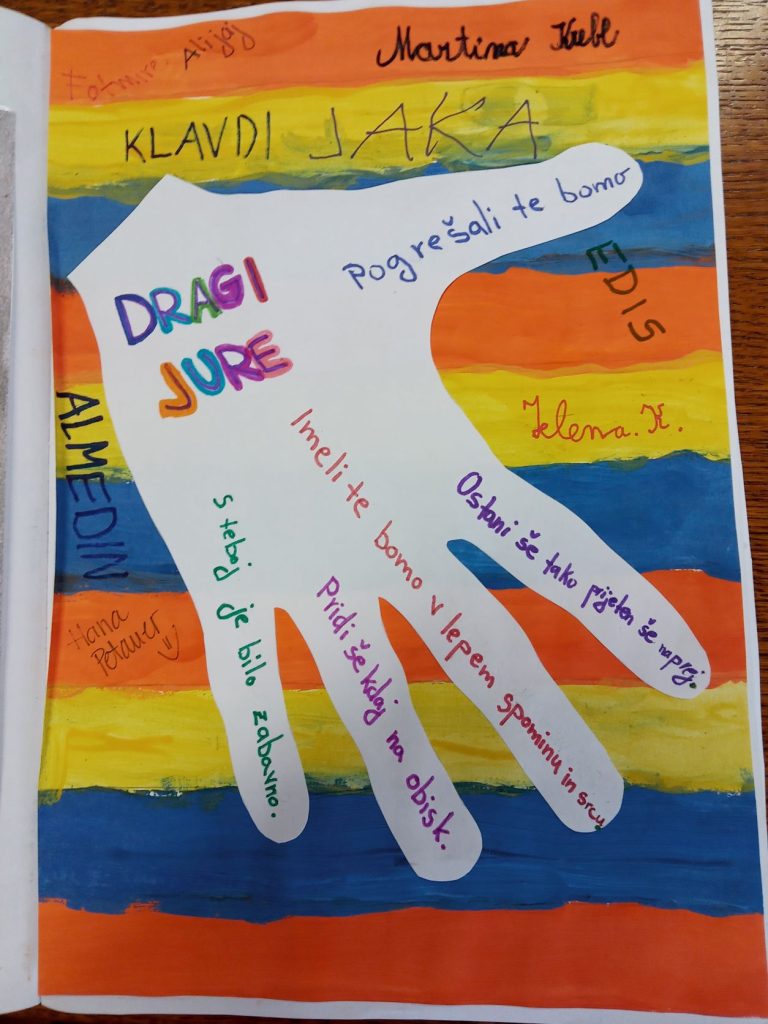 Alijaj
Martina Krebl
KLAVDI JAKA
Pogrešali te bomo
EDIS
DRAGI
JURE
Jelena. K.
ALMEDIN
Imeli te bomo v lepem spominu in srcu
Ostani še tako prijeten še naprej.
S teboj je bilo zabavno.
Pridi še kdaj na obisk.
Hana
Petauer